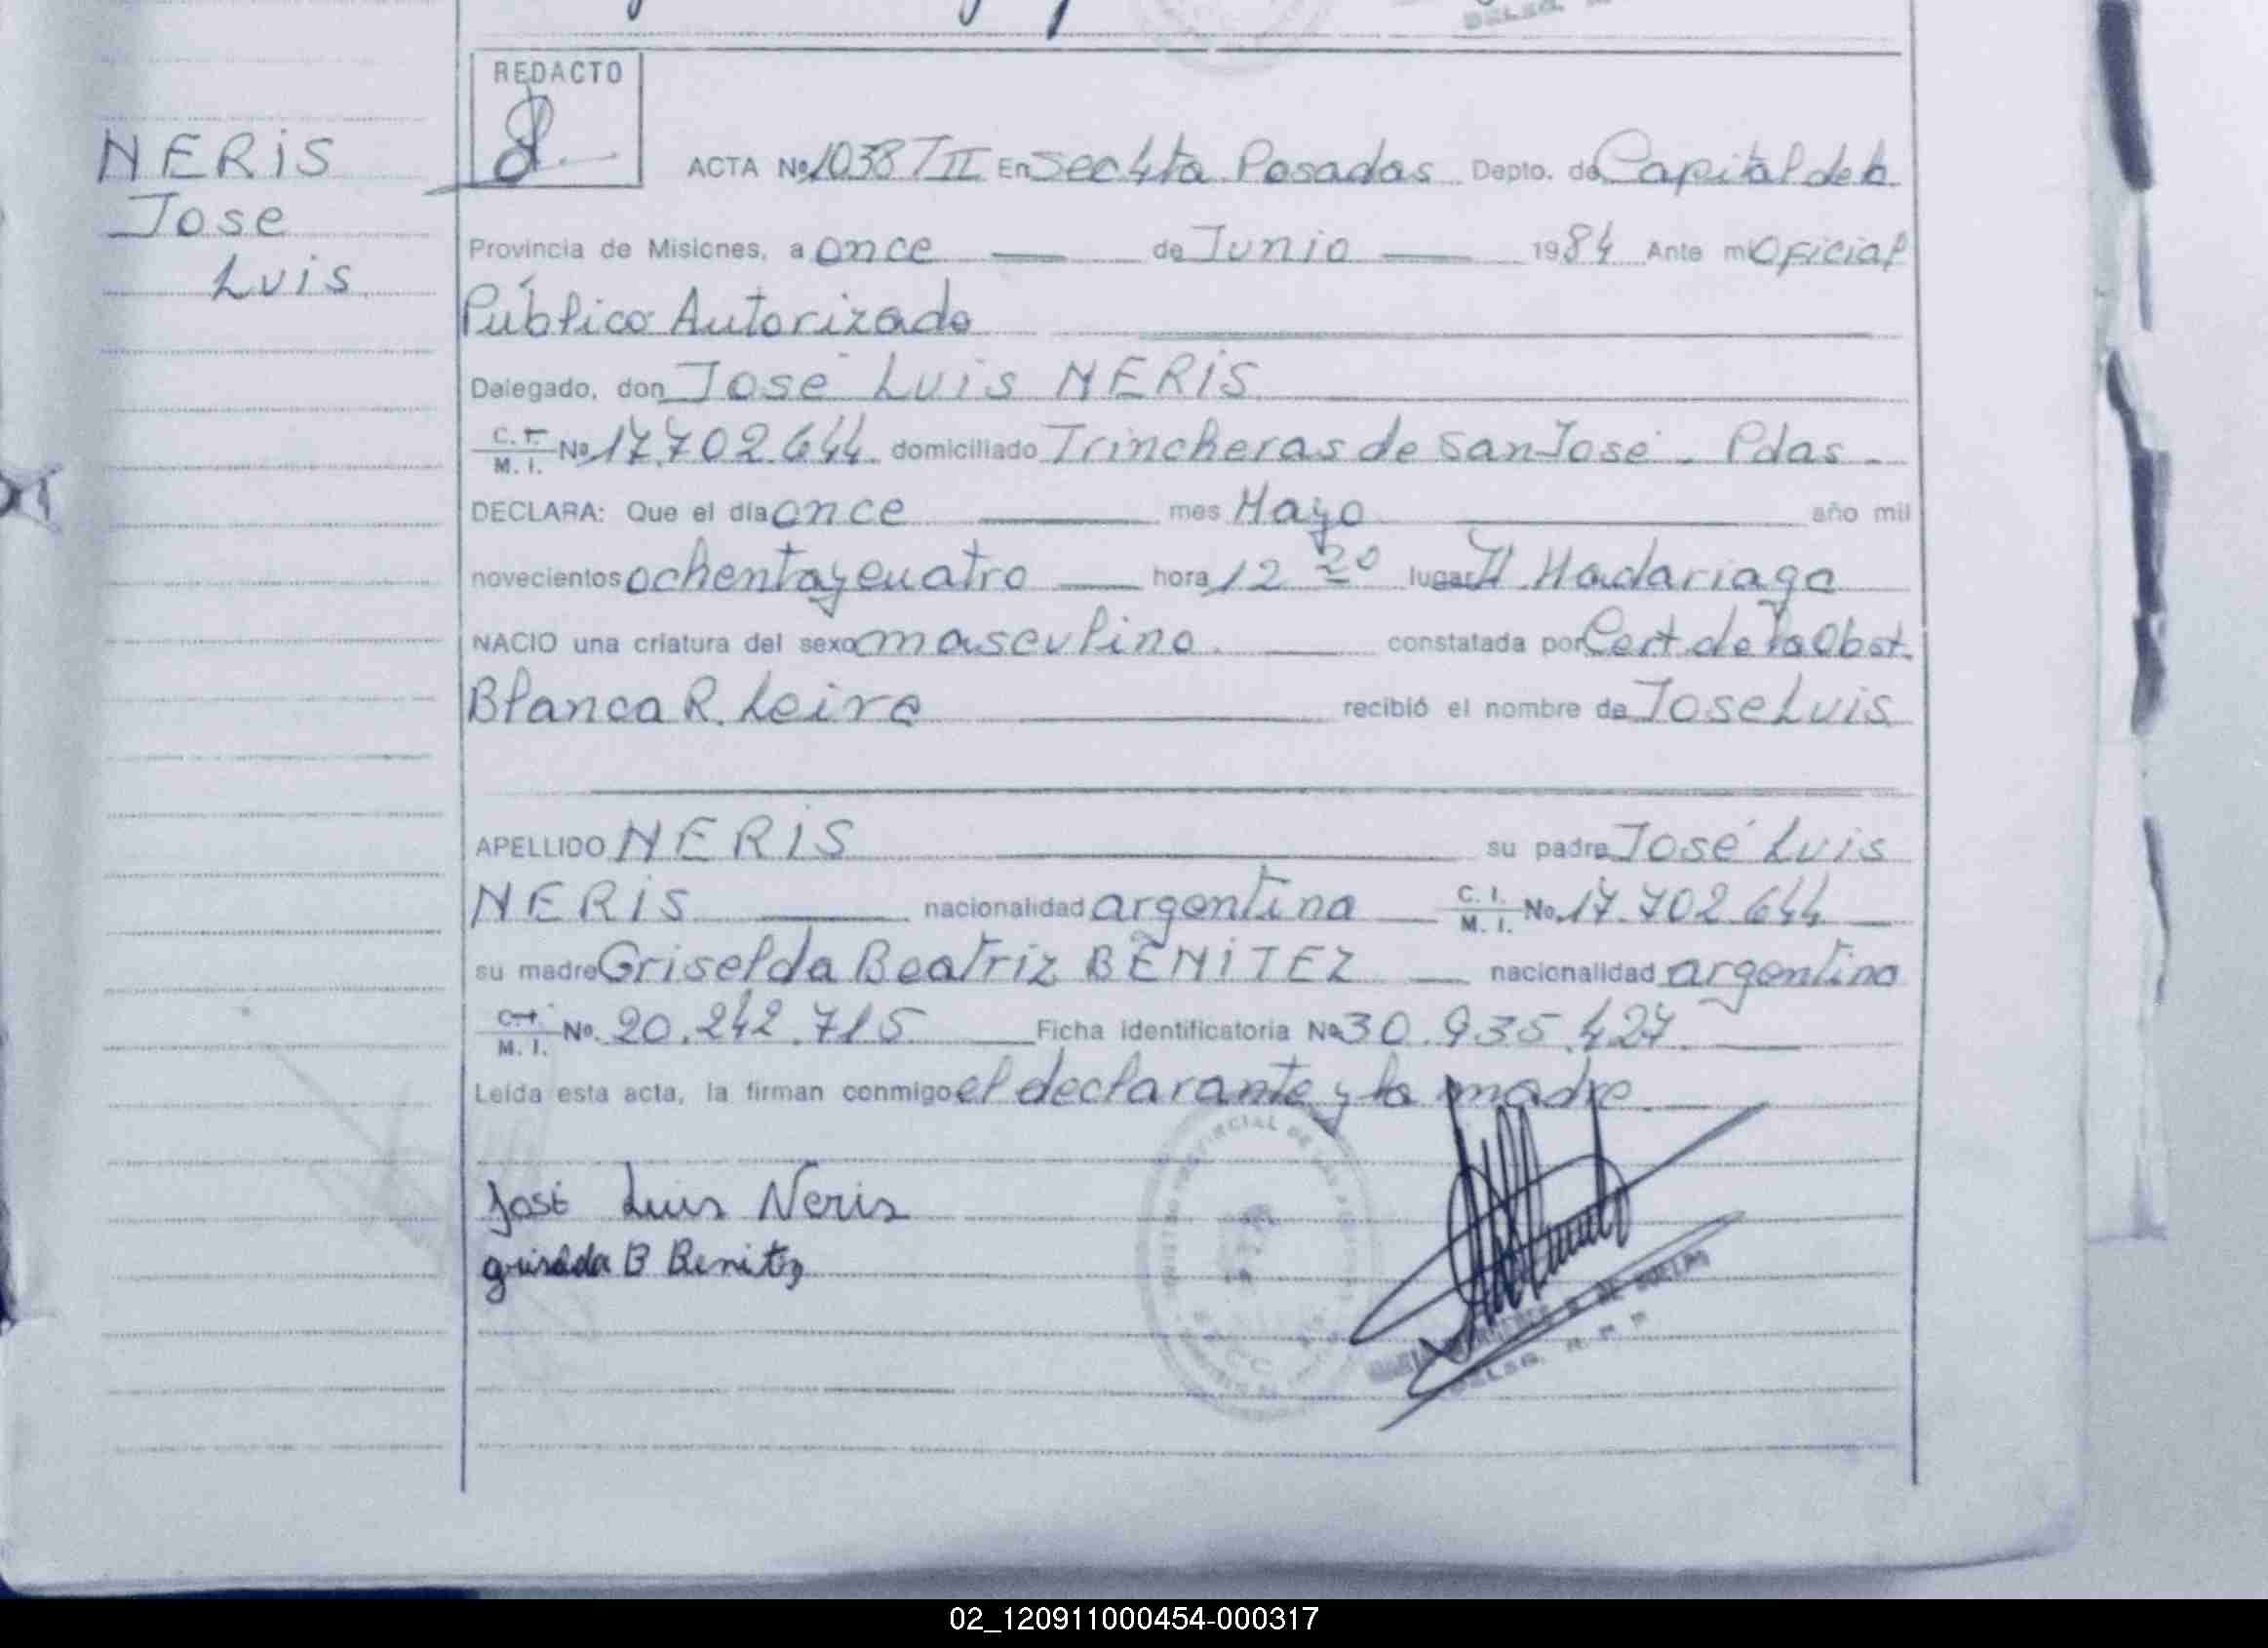 NERIS
Jose
Luis
REDACTO
ACTA Nº 1038 TII En Sec 4ta Posadas Depto. de Capital de la
Provincia de Misiones, a once de Junio 1984 Ante mi Oficial
Público Autorizado
Delegado, don José Luis NERIS
C. I. M. I. Nº 17.702.644 domiciliado Trincheras de San José - Pdas -
DECLARA: Que el día once mes Mayo año mil
novecientos ochenta y cuatro hora 12 20 lugar H. Madariaga
NACIO una criatura del sexo masculino. constatada por Cert. de la Obst.
Blanca R. Leiva recibió el nombre de Jose Luis
APELLIDO NERIS su padre José Luis
NERIS nacionalidad argentina C. I. M. I. No. 17.702.644
su madre Griselda Beatriz BENITEZ nacionalidad argentina
C. I. M. I. No. 20.242.715 Ficha identificatoria Nº 30.935.427
Leída esta acta, la firman conmigo el declarante y la madre
José Luis Neris
Griselda B Benitez
DELEG. R. P. P.
02_120911000454-000317